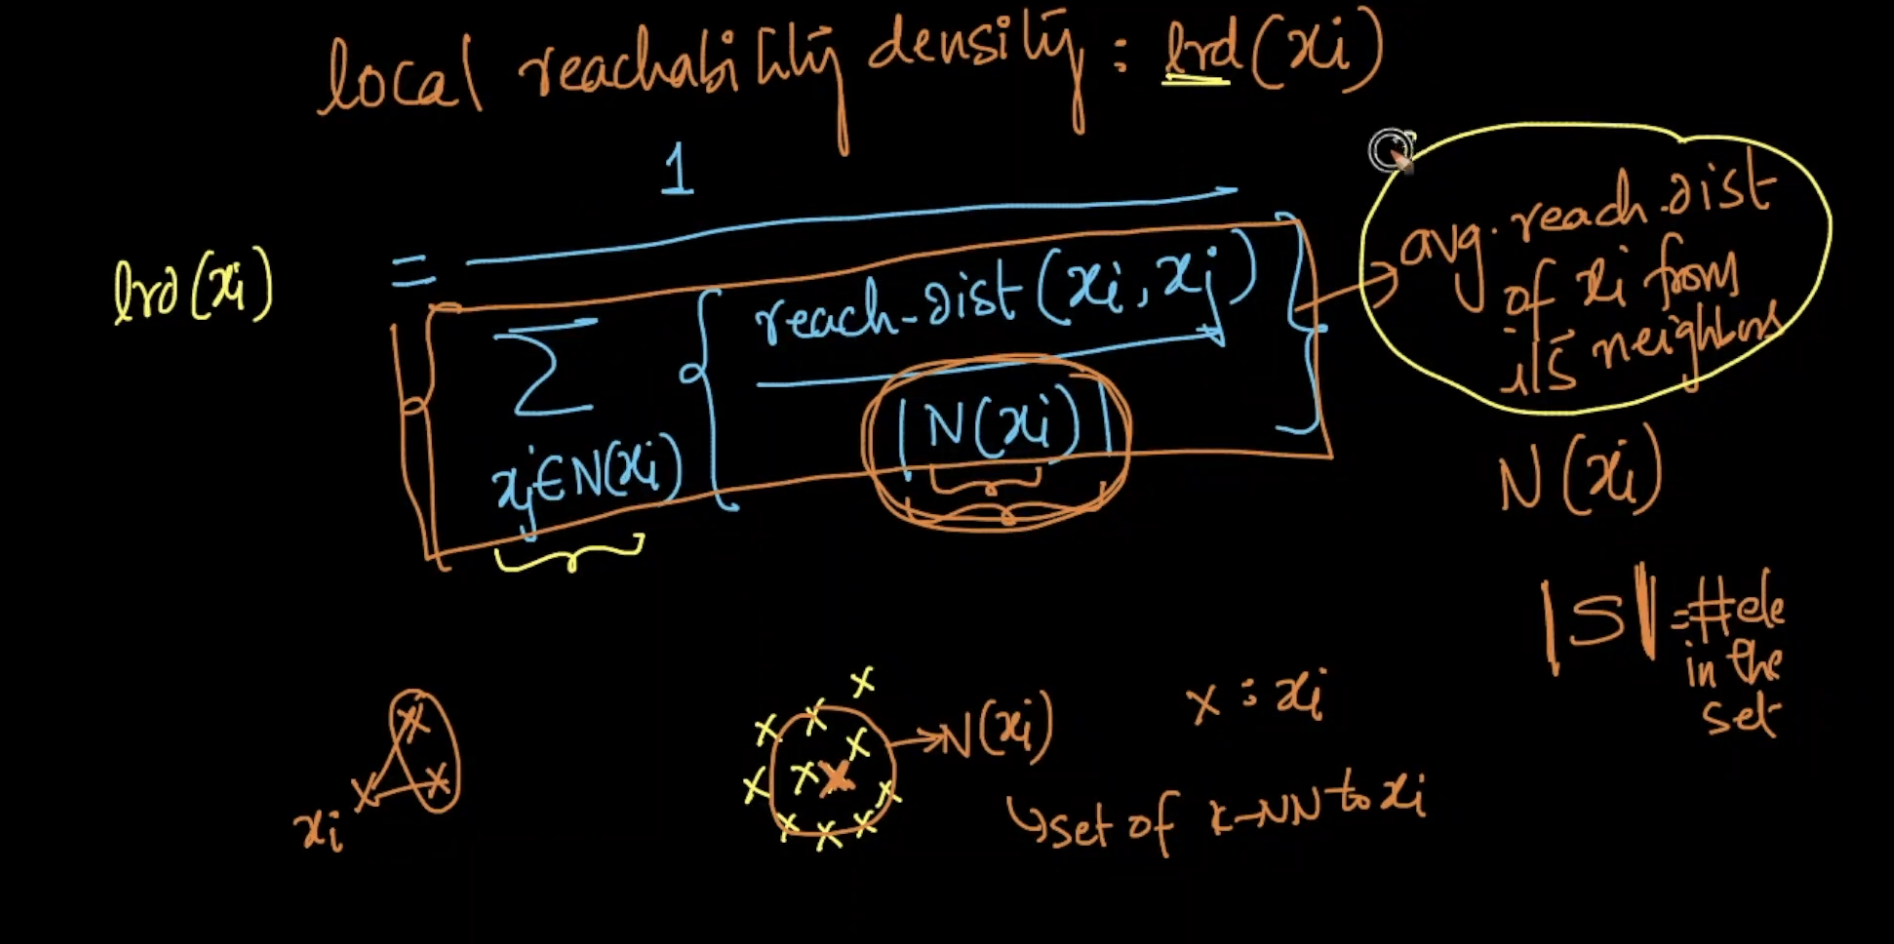 local reachability density : lrd(xi)
1
lrd(xi) =
Σ { reach-dist(xi, xj) }
xj∈N(xi)
|N(xi)|
avg. reach-dist
of xi from
it's neighbors
N(xi)
|S| = #ele
in the
set
x : xi
N(xi)
set of k-NN to xi
xi